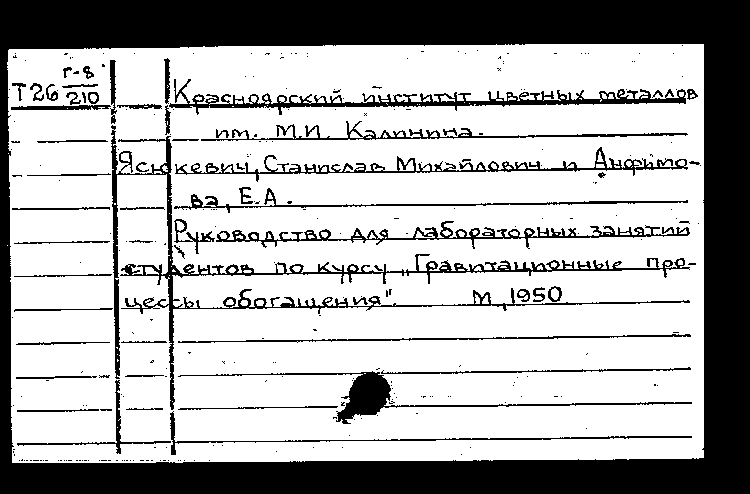 Т26 г-8/210
Красноярский институт цветных металлов
им. М.И. Калинина.
Ясюкевич, Станислав Михайлович и Анфимо-
ва, Е.А.
Руководство для лабораторных занятий
студентов по курсу „Гравитационные про-
цессы обогащения". М., 1950